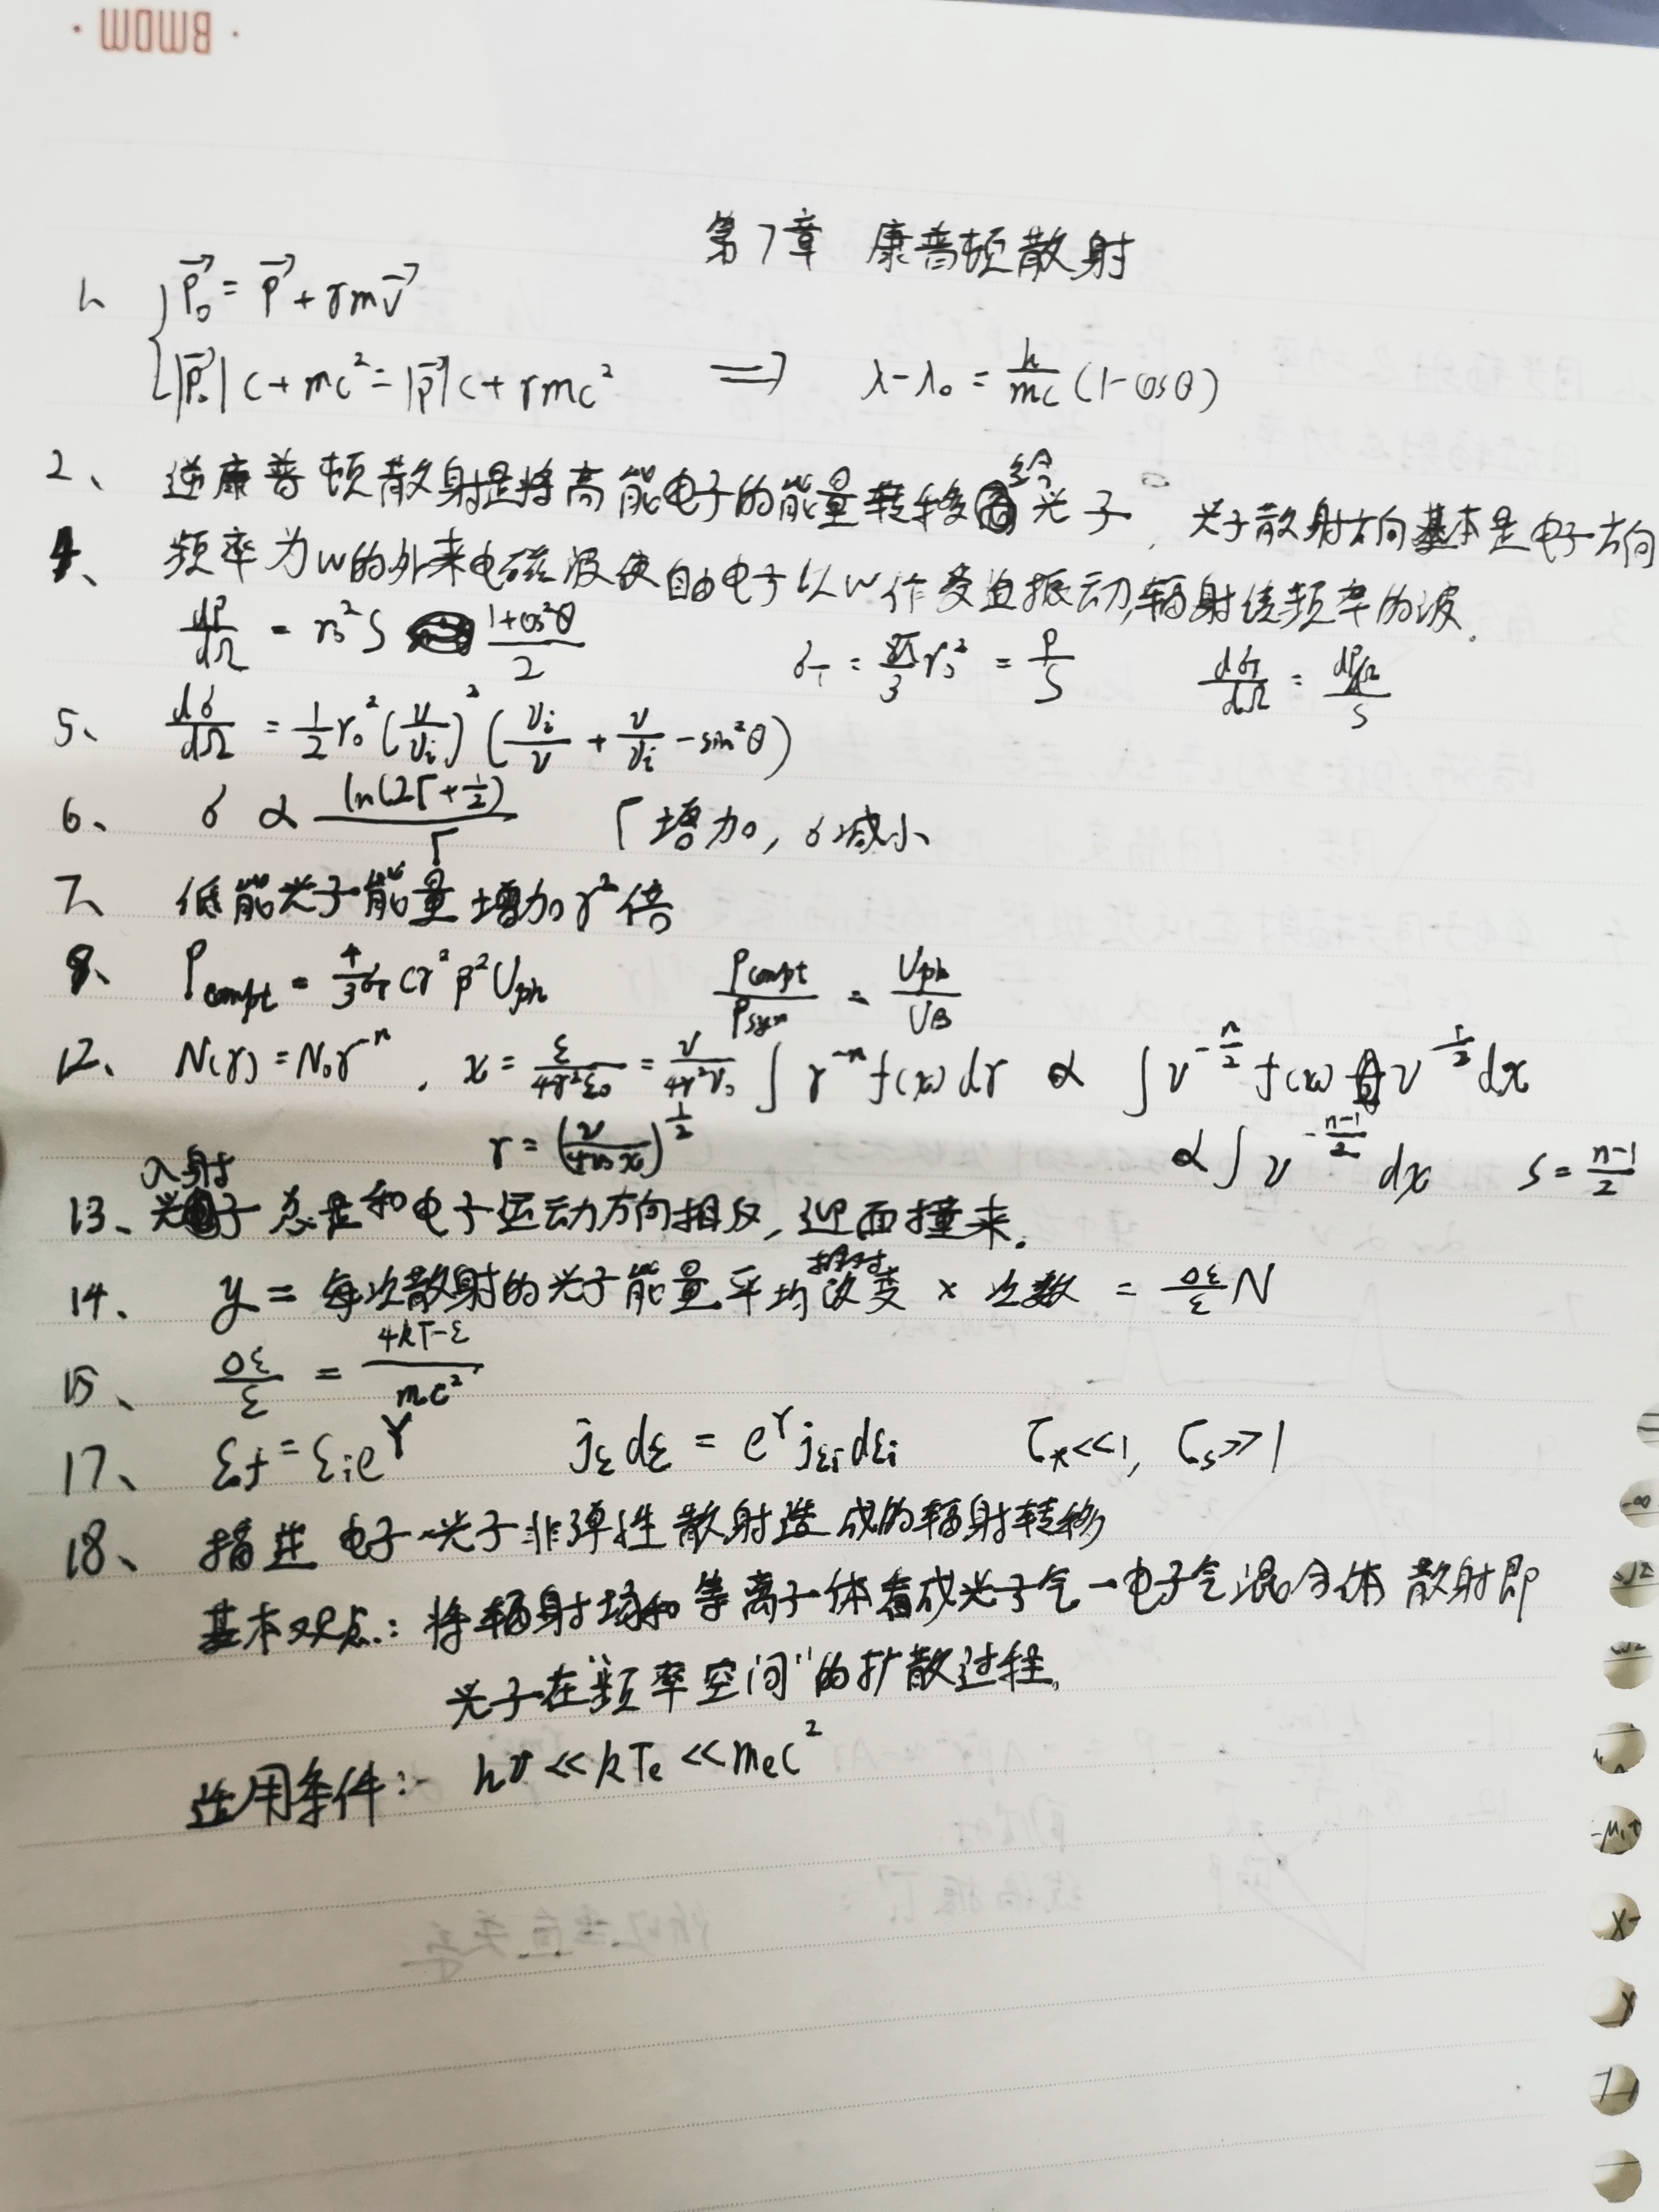 BMDM
第7章 康普顿散射
1、 { \vec{P_0} = \vec{P} + γm\vec{v}
|\vec{P_0}|c + mc² = |\vec{P}|c + γmc² ⟹ λ-λ₀ = \frac{h}{mc}(1-cosθ)
2、 逆康普顿散射是将高能电子的能量转移给光子，光子散射方向基本是电子方向
4、 频率为w的外来电磁波使自由电子以w作受迫振动,辐射该频率的波.
\frac{dP}{dΩ} = r_0²S \frac{1+cos²θ}{2} σ_T = \frac{8π}{3}r_0² = \frac{P}{S} \frac{dσ_T}{dΩ} = \frac{dP/dΩ}{S}
5、 \frac{dσ}{dΩ} = \frac{1}{2}r_0²(\frac{ν}{ν_i})²(\frac{ν_i}{ν} + \frac{ν}{ν_i} - sin²θ)
6、 σ ∝ \frac{ln(2Γ+\frac{1}{2})}{Γ} Γ增加，σ减小
7、 低能光子能量增加γ²倍
8、 P_{compt} = \frac{4}{3}σ_T cγ²β²U_{ph} \frac{P_{compt}}{P_{syn}} = \frac{U_{ph}}{U_B}
12、 N(γ) = N₀γ^{-n} , x = \frac{ε}{4γ²ε_0} = \frac{ν}{4γ²ν_0} ∫γ^{-n}f(x)dγ ∝ ∫ν^{-\frac{n}{2}}f(x)ν^{\frac{1}{2}}dx
γ = (\frac{ν}{4ν_0x})^{\frac{1}{2}} ∝ ∫ν^{-\frac{n-1}{2}}dx s = \frac{n-1}{2}
13、 入射光子总是和电子运动方向相反，迎面撞来.
14、 y = 每次散射的光子能量平均相对改变 × 次数 = \frac{Δε}{ε}N
15、 \frac{Δε}{ε} = \frac{4kT-ε}{mc²}
17、 ε_f = ε_i e^Y j_ε dε = e^Y j_{εi} dε_i τ_*<<1, τ_s>>1
18、 描述电子-光子非弹性散射造成的辐射转移
基本观点：将辐射场和等离子体看成光子气-电子气混合体 散射即
光子在"频率空间"的扩散过程.
适用条件： hν<<kT_e<<m_ec²